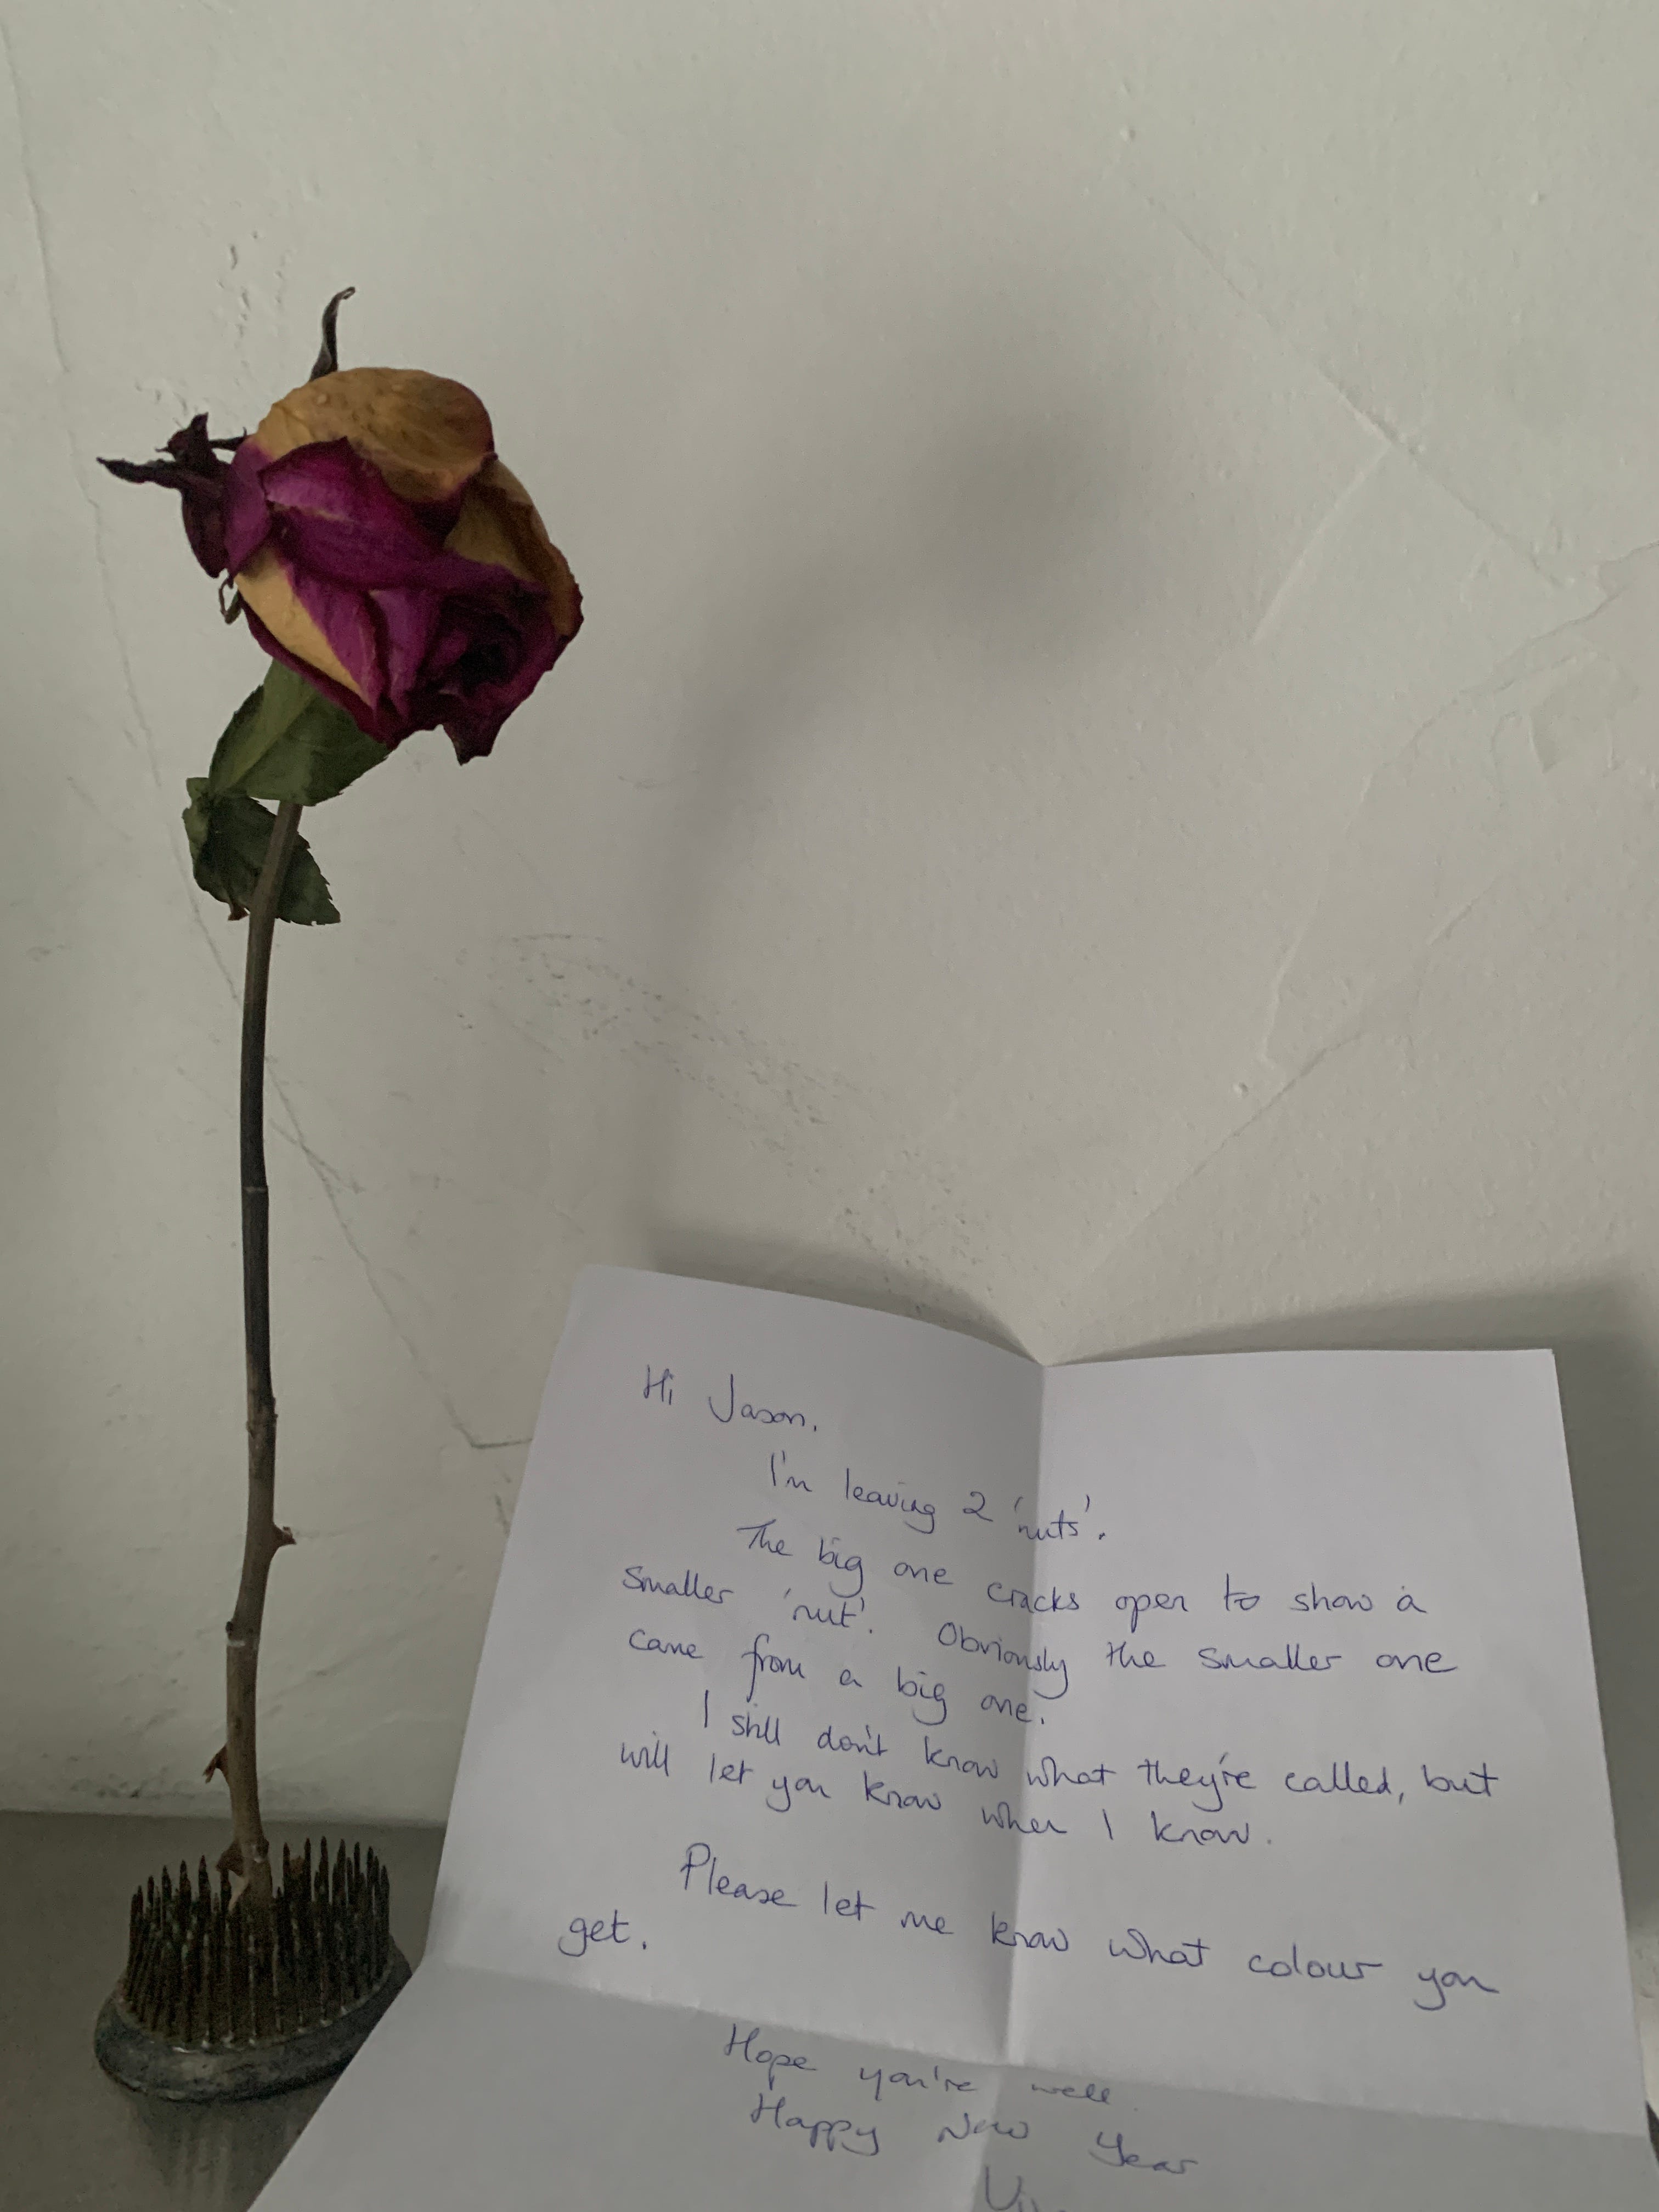 Hi Jason,
I'm leaving 2 'nuts'.
The big one cracks open to show a
smaller 'nut'. Obviously the smaller one
came from a big one.
I still don't know what they're called, but
will let you know when I know.
Please let me know what colour you
get.
Hope you're well.
Happy New Year